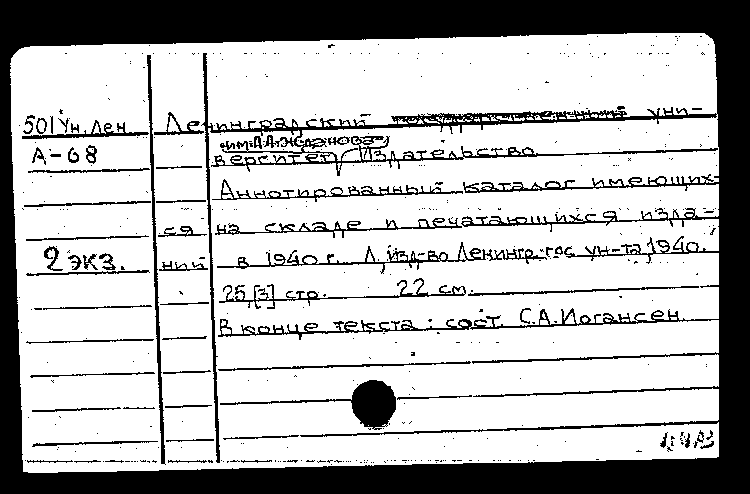 501 Ун.Лен Ленинградский уни-
А-68 верситет им. А.А.Жданова Издательство
Аннотированный каталог имеющих-
ся на складе и печатающихся изда-
2 экз. ний в 1940 г. Л, Изд-во Ленингр. гос ун-та, 1940.
25,[3] стр. 22 см.
В конце текста: сост. С.А.Иогансен